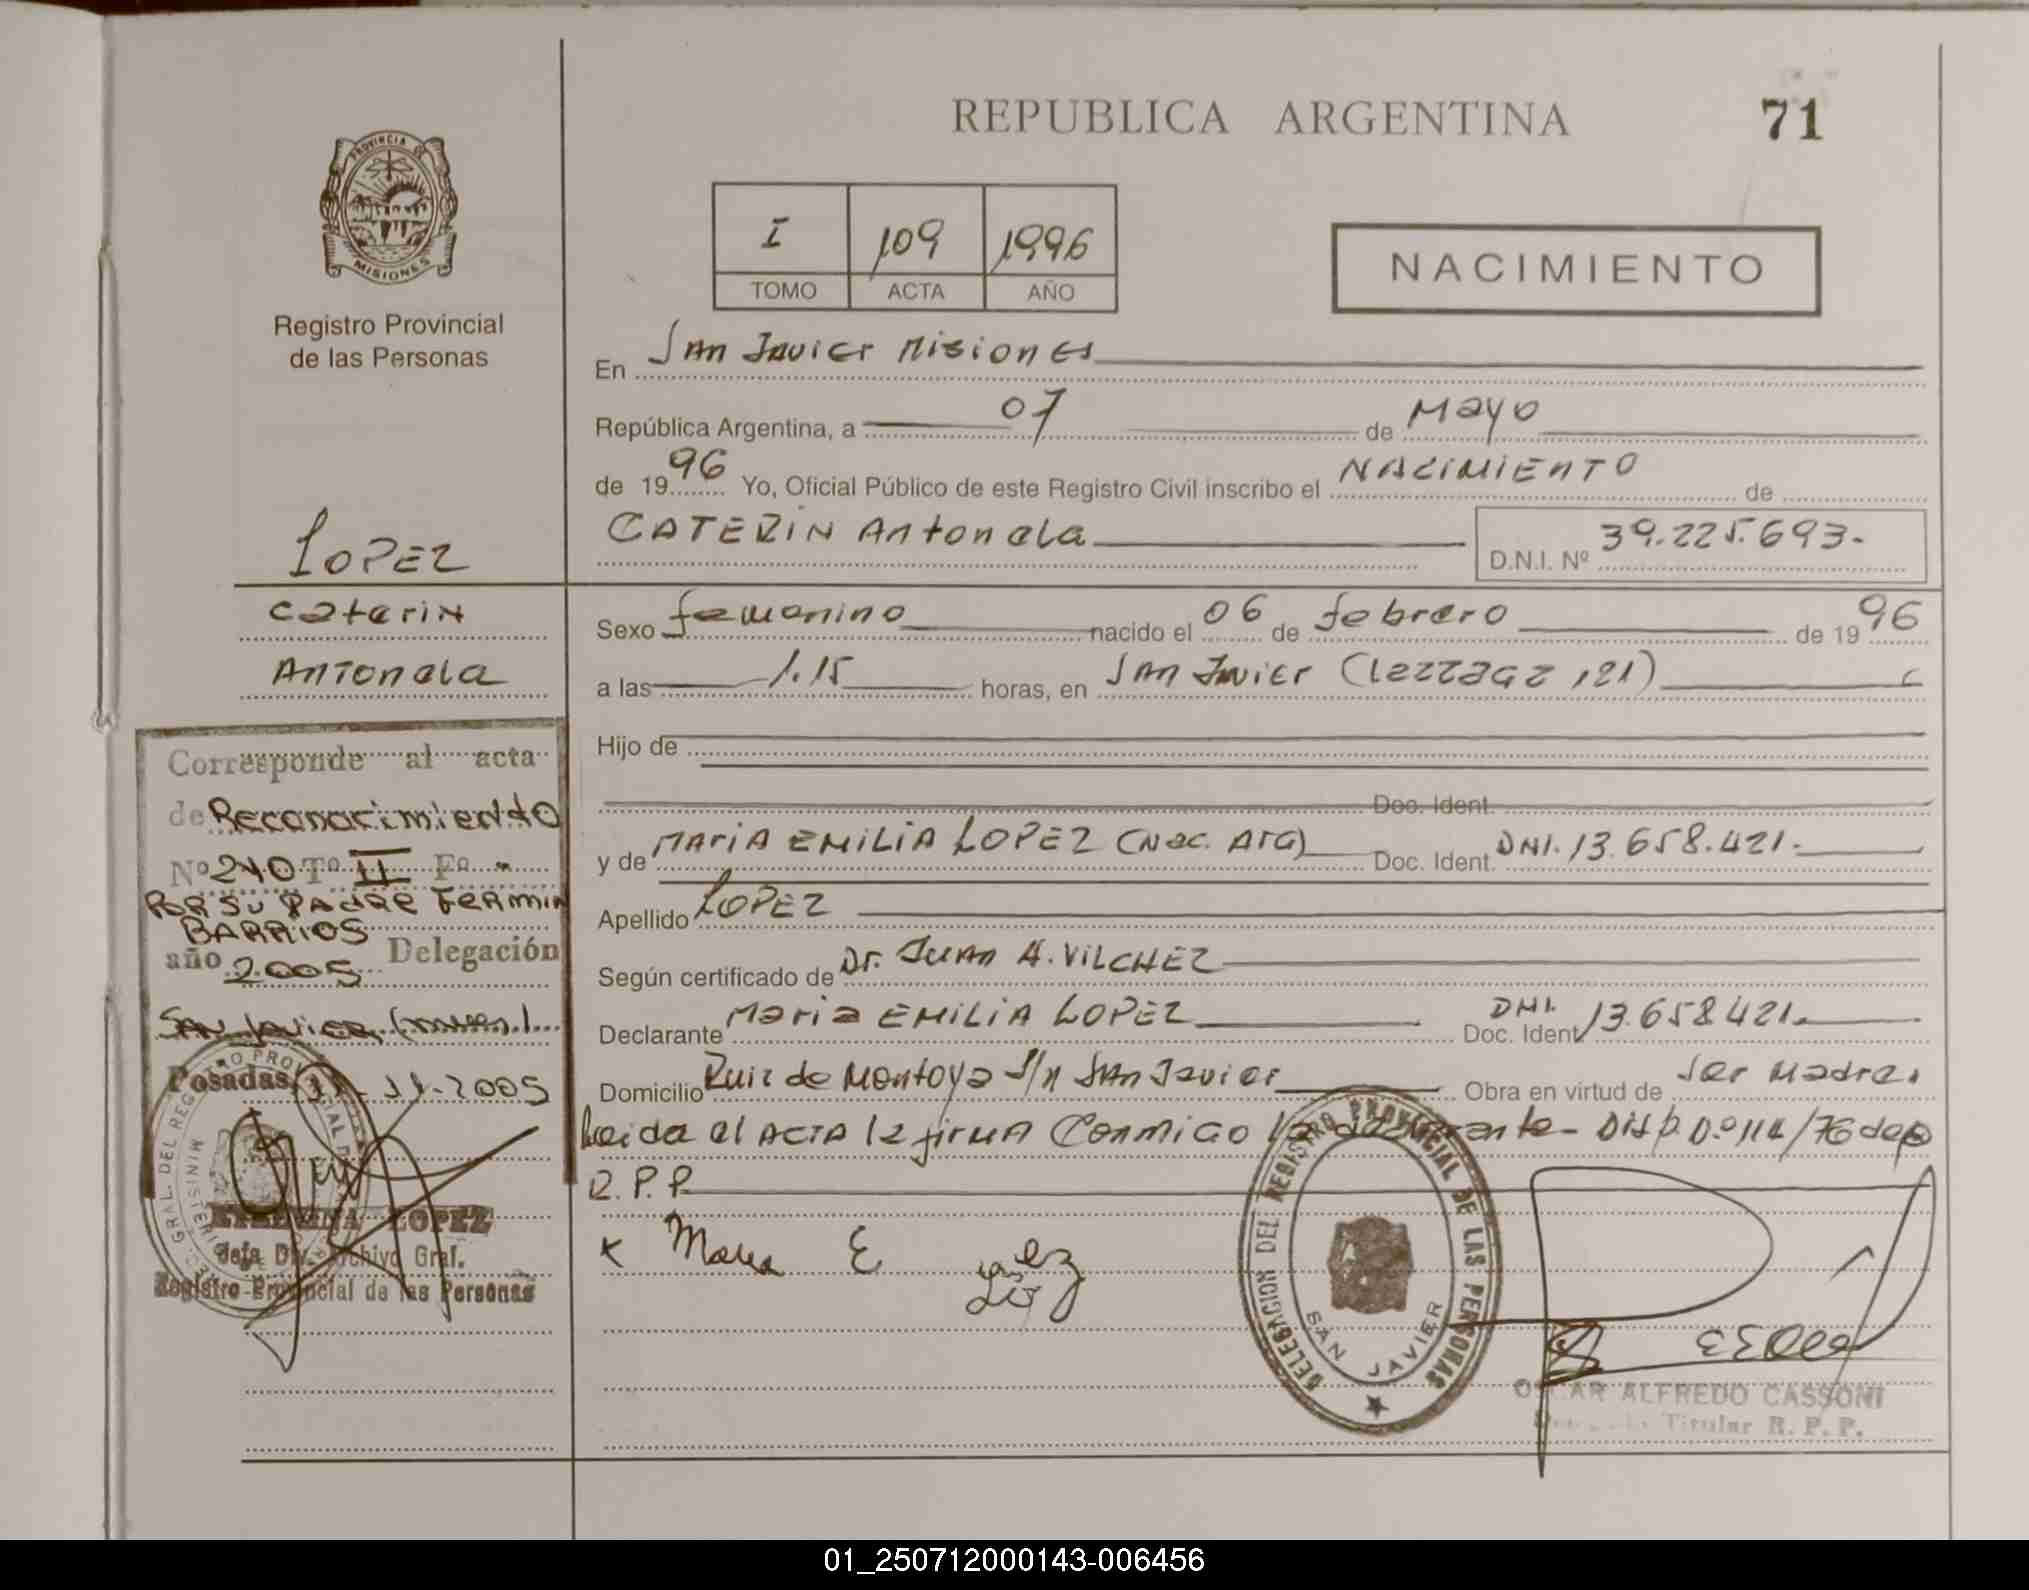 REPUBLICA ARGENTINA
71
PROVINCIA DE
MISIONES
Registro Provincial
de las Personas
I 109 1996
TOMO ACTA AÑO
NACIMIENTO
En San Javier Misiones
República Argentina, a 07 de Mayo
de 1996 Yo, Oficial Público de este Registro Civil inscribo el NACIMIENTO de
CATERIN Antonela
D.N.I. Nº 39.225.693.-
LOPEZ
Caterin
Antonela
Sexo femenino nacido el 06 de febrero de 1996
a las 1.15 horas, en San Javier (Lezzaga 121)
Hijo de
Doc. Ident.
y de MARIA EMILIA LOPEZ (Nac. ARG) Doc. Ident. DNI. 13.658.421.-
Apellido LOPEZ
Según certificado de Dr. Juan A. VILCHEZ
Declarante Maria EMILIA LOPEZ Doc. Ident DNI. 13.658.421.-
Domicilio Ruiz de Montoya S/n San Javier Obra en virtud de ser madre.
Leida el ACTA la firma Conmigo la declarante- Disp.
R.P.P.
x Maria E
Corresponde al acta
de Reconocimiento
Nº 210 Tº II Fº -
POR SU PADRE FERMIN
BARRIOS
año 2005 Delegación
San Javier (Mnes.)
Posadas, 11-2005
LOPEZ
Jefa Div. Archivo Gral.
Registro Provincial de las Personas
DELEGACION DEL REGISTRO PROVINCIAL DE LAS PERSONAS
SAN JAVIER
OSCAR ALFREDO CASSONI
Titular R. P. P.
01_250712000143-006456